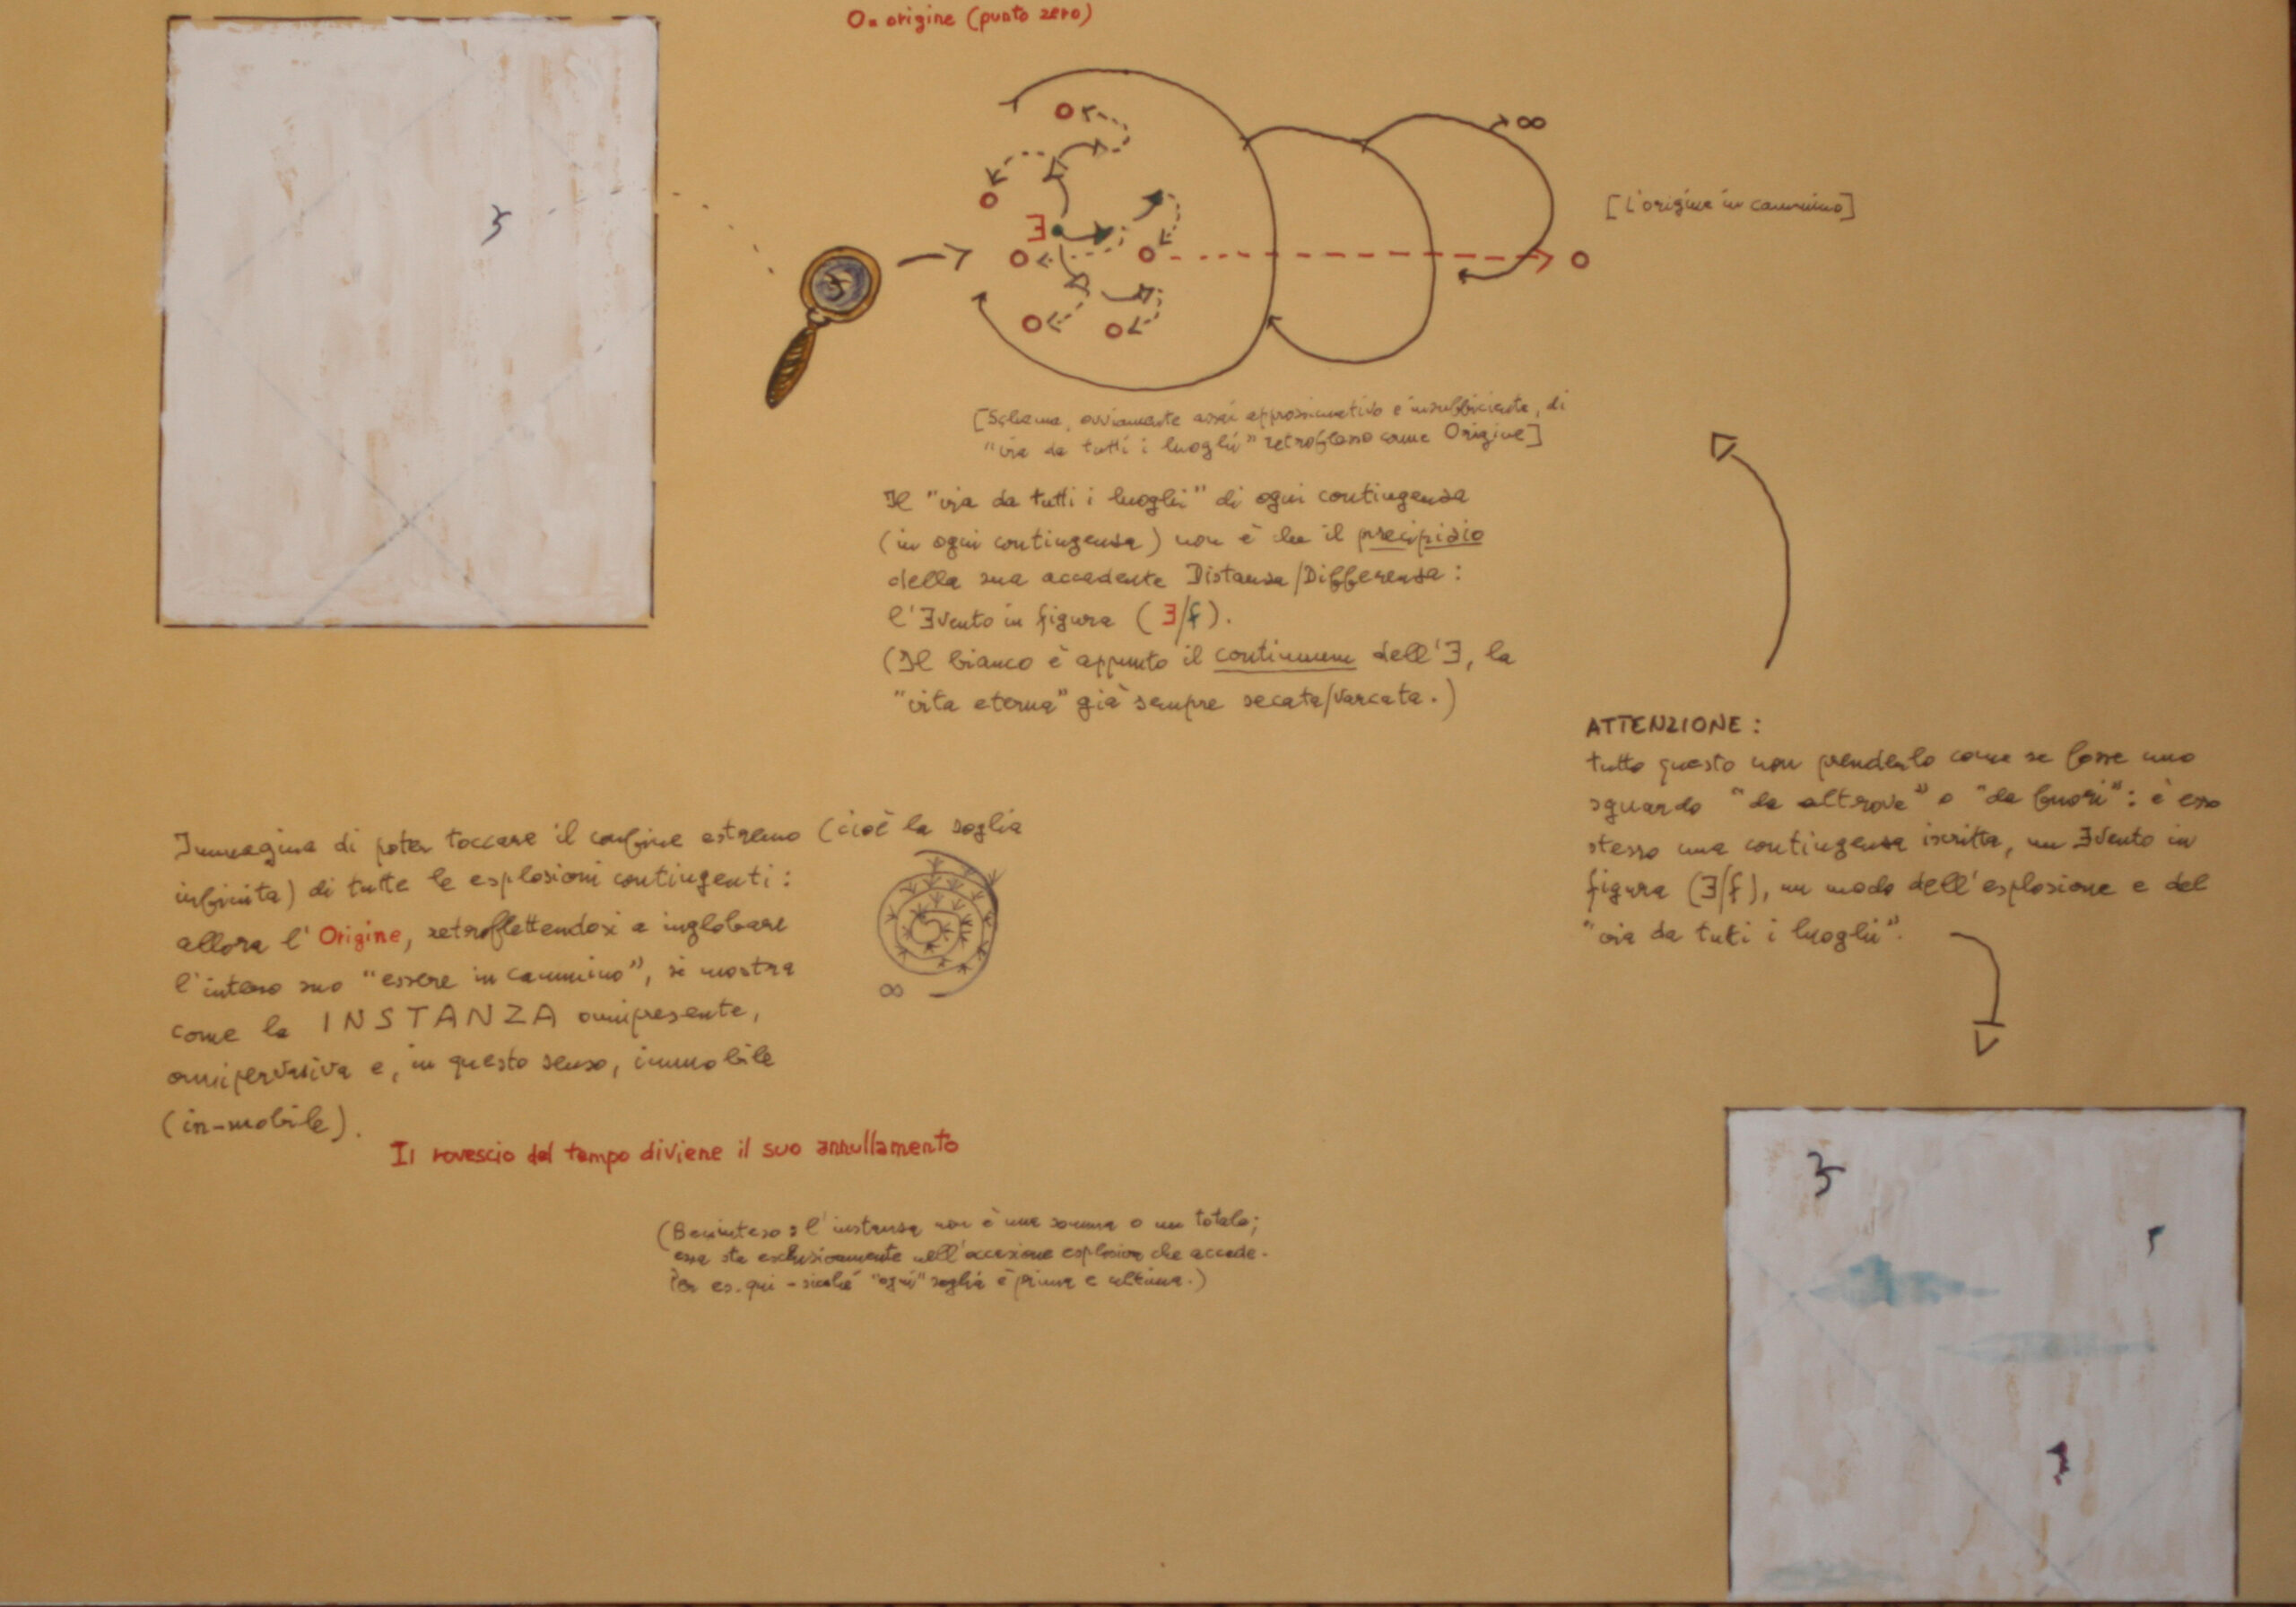 O = origine (punto zero)
∞
[L'origine in cammino]
Ǝ
[Schema, ovviamente assai approssimativo e insufficiente, di
"via da tutti i luoghi" retroflesso come Origine]
Il "via da tutti i luoghi" di ogni contingenza
(in ogni contingenza) non è che il precipizio
della sua accadente Distanza/Differenza:
l'Ǝvento in figura (Ǝ/f).
(Il bianco è appunto il continuum dell'Ǝ, la
"vita eterna" già sempre secata/varcata.)
ATTENZIONE:
tutto questo non prenderlo come se fosse uno
sguardo "da altrove" o "da fuori": è esso
stesso una contingenza iscritta, un Ǝvento in
figura (Ǝ/f), un modo dell'esplosione e del
"via da tutti i luoghi".
Immagina di poter toccare il confine estremo (cioè la soglia
infinita) di tutte le esplosioni contingenti:
allora l'Origine, retroflettendosi a inglobare
l'intero suo "essere in cammino", si mostra
come la INSTANZA onnipresente,
onnipervasiva e, in questo senso, immobile
(in-mobile).
∞
Il rovescio del tempo diviene il suo annullamento
(Beninteso: l'instanza non è una somma o un totale;
essa sta esclusivamente nell'occasione esplosiva che accade.
Per es. qui - sicché "ogni" soglia è prima e ultima.)